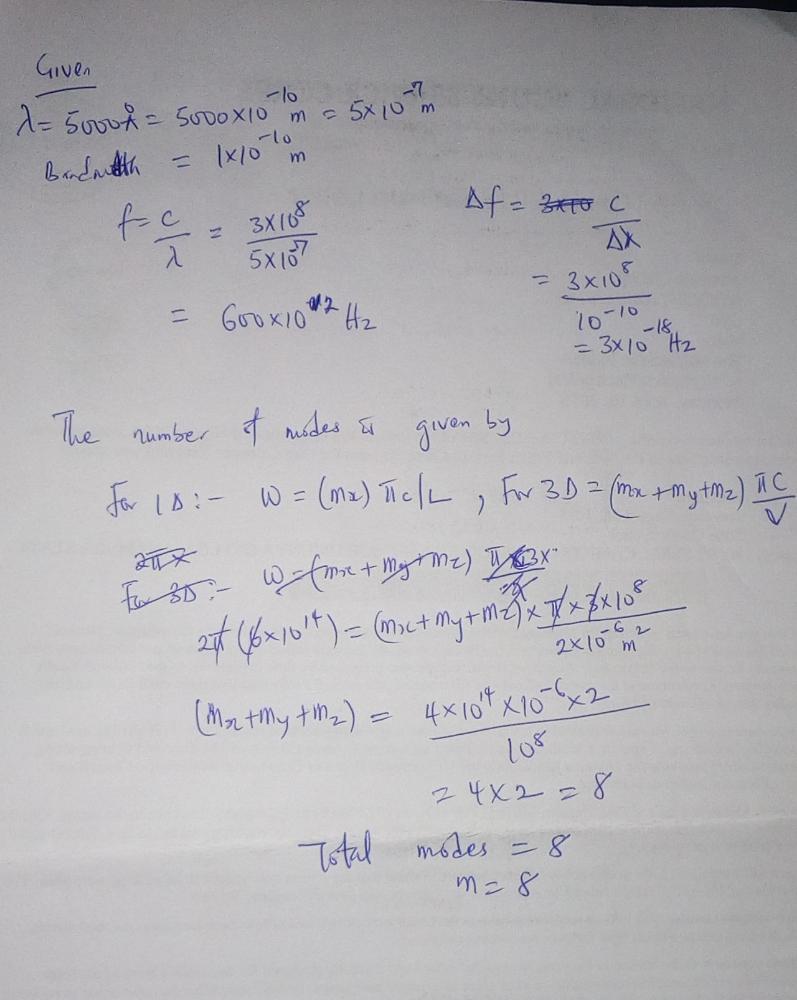 Given
λ = 5000Å = 5000×10⁻¹⁰ m = 5×10⁻⁷ m
Bandwidth = 1×10⁻¹⁰ m
f = c/λ = 3×10⁸/5×10⁻⁷
= 600×10¹² Hz
Δf = c/Δλ
= 3×10⁸/10⁻¹⁰
= 3×10⁻¹⁸ Hz
The number of modes is given by
For 1D :- W = (mx) πc/L , For 3D = (mx+my+mz) πC/V
2πx
For 3D :- W = (mx+my+mz)
2π (6×10¹⁴) = (mx+my+mz) × π×3×10⁸/2×10⁻⁶ m²
(mx+my+mz) = 4×10¹⁴×10⁻⁶×2/10⁸
= 4×2 = 8
Total modes = 8
m = 8